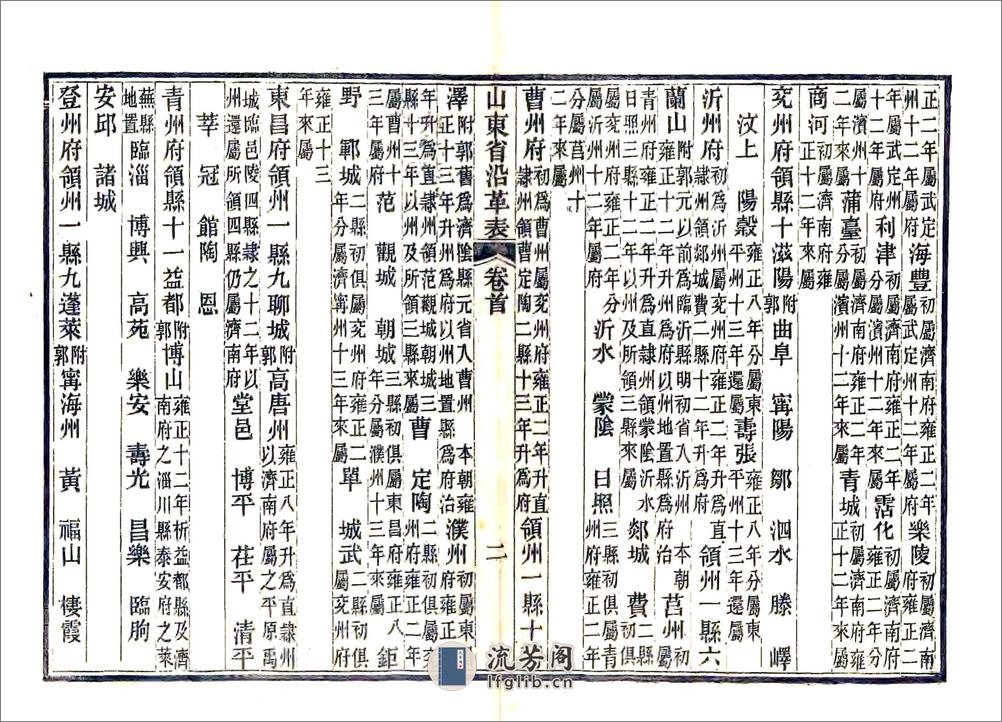 正二年屬武定州十二年屬府 海豐 初屬濟南府雍正二年屬武定州十二年屬府 樂陵 初屬濟南府雍正二
年屬武定州十二年屬府 利津 初屬濟南府雍正二年分屬濱州十二年屬府 霑化 初屬濟南府雍正二年分
屬濱州十二年來屬 蒲臺 初屬濟南府雍正二年分屬濱州十二年來屬 青城 初屬濟南府雍正十二年來屬
商河 初屬濟南府雍正十二年來屬
兗州府領縣十滋陽 附郭 曲阜 甯陽 鄒 泗水 滕 嶧
汶上 陽穀 雍正八年分屬東平州十三年還屬 壽張 雍正八年分屬東平州十三年還屬
沂州府 初為沂州屬兗州府雍正二年升為直隸州領郯城費二縣十二年升為府 領州一縣六
蘭山 附郭元以前為臨沂縣明初省入沂州 本朝雍正十二年升州為府以州地置縣為府治 莒州 初屬
青州府雍正二年升為直隸州領蒙陰沂水日照三縣十二年以州及所領三縣來屬 郯城 費 二縣初俱
屬兗州府雍正二年分屬沂州十二年屬府 沂水 蒙陰 日照 三縣初俱屬青州府雍正二年
分屬莒州十二年來屬
曹州府 初為曹州屬兗州府雍正二年升直隸州領曹定陶二縣十三年升為府 領州一縣十
山東省沿革表 卷首 二
澤 附郭舊為濟陰縣元省入曹州 本朝雍正十三年升州為府以州地置縣為府治 濮州 初屬東昌府雍正八
年升為直隸州領范觀城朝城三縣十三年以州及所領三縣來屬 曹 定陶 二縣初俱屬兗州府雍正二年分
屬曹州十三年屬府 范 觀城 朝城 三縣初俱屬東昌府雍正八年分屬濮州十三年來屬 鉅
野 鄆城 二縣初俱屬兗州府雍正二年分屬濟甯州十三年來屬 單 城武 二縣初俱屬兗州府
雍正十三年來屬
東昌府領州一縣九聊城 附郭 高唐州 雍正八年升為直隸州以濟南府屬之平原禹
城臨邑陵四縣隸之十二年以州還屬所領四縣仍屬濟南府 堂邑 博平 茌平 清平
莘 冠 館陶 恩
青州府領縣十一益都 附郭 博山 雍正十二年析益都縣及濟南府之淄川縣泰安府之萊
蕪縣地置 臨淄 博興 高苑 樂安 壽光 昌樂 臨朐
安邱 諸城
登州府領州一縣九蓬萊 附郭 甯海州 黃 福山 棲霞
流芳阁
lfglib.cn